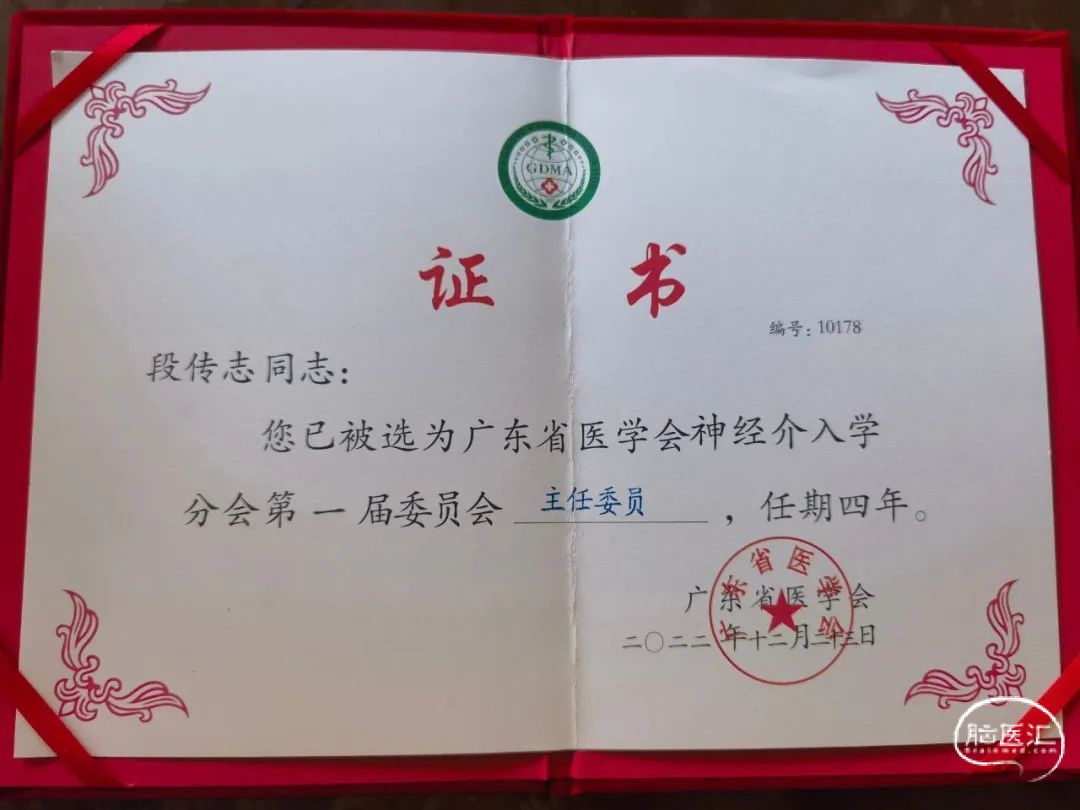 GDMA
证 书
编号:10178
段传志同志:
您已被选为广东省医学会神经介入学
分会第一届委员会 主任委员 ,任期四年。
广东省医学会
二〇二二年十二月二十三日
广东省医学会
脑医汇
brainmed.com